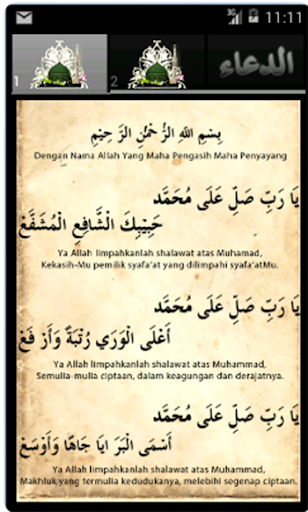 3G 11:11
1 2 الدعاء
بِسْمِ اللهِ الرَّحْمٰنِ الرَّ حِيْمِ
Dengan Nama Allah Yang Maha Pengasih Maha Penyayang
يَا رَبِّ صَلِّ عَلَى مُحَمَّد
حَبِيْبِكَ الشَّافِعِ الْمُشَفَّعْ
Ya Allah limpahkanlah shalawat atas Muhamad,
Kekasih-Mu pemilik syafa'at yang dilimpahi syafa'atMu.
يَا رَبِّ صَلِّ عَلَى مُحَمَّد
أَعْلَى الْوَرَي رُتْبَةً وَأَرْ فَعْ
Ya Allah limpahkanlah shalawat atas Muhammad,
Semulia-mulia ciptaan, dalam keagungan dan derajatnya.
يَا رَبِّ صَلِّ عَلَى مُحَمَّد
أَسْمَى الْبَرَ ايَا جَاهًا وَأَوْسَعْ
Ya Allah limpahkanlah shalawat atas Muhammad,
Makhluk yang termulia kedudukanya, melebihi segenap ciptaan.